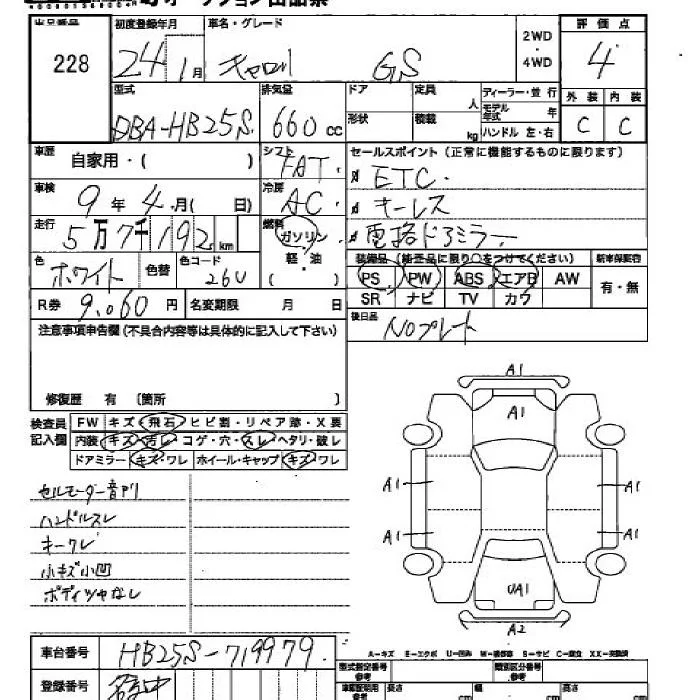 出品番号 初度登録年月 車名・グレード 2WD・4WD 評価点
228 24年1月 キャロル GS 4
型式 排気量 ドア 定員 人 ディーラー・並行 外装 内装
DBA-HB25S 660cc 形状 積載 kg モデル年式 年 ハンドル 左・右 C C
車歴 自家用・( ) シフト FAT セールスポイント(正常に機能するものに限ります)
車検 9年4月( 日) 冷房 AC ETC.
走行 5万7千192km 燃料 ガソリン・軽・油 ( ) キーレス
電格ドアミラー
色 ホワイト 色替 色コード 26U 装備品(検査品に限り○をつけてください) 新車保証書
PS PW ABS エアB AW 有・無
R券 9,060円 名変期限 月 日 SR ナビ TV カワ
注意事項申告欄(不具合内容等は具体的に記入して下さい) 後日品 NOプレート
修復歴 有 〔箇所 〕
検査員記入欄 FW キズ・飛石・ヒビ割・リペア跡・X要
内装 キズ・汚レ・コゲ・穴・スレ・ヘタリ・破レ
ドアミラー キズ・ワレ ホイール・キャップ キズ・ワレ
セルモーター音円
ハンドルスレ
キークレ
小キズ小凹
ボディツヤなし
A1
A1
A1 A1
A1 A1
UA1
A2
A-キズ E-エクボ U-凹み W-補修跡 S-サビ C-腐食 XX-交換済
車台番号 HB25S-719979
登録番号 型式指定番号 参考 類別区分番号 参考
車庫証明用 参考 長さ cm 幅 cm 高さ cm